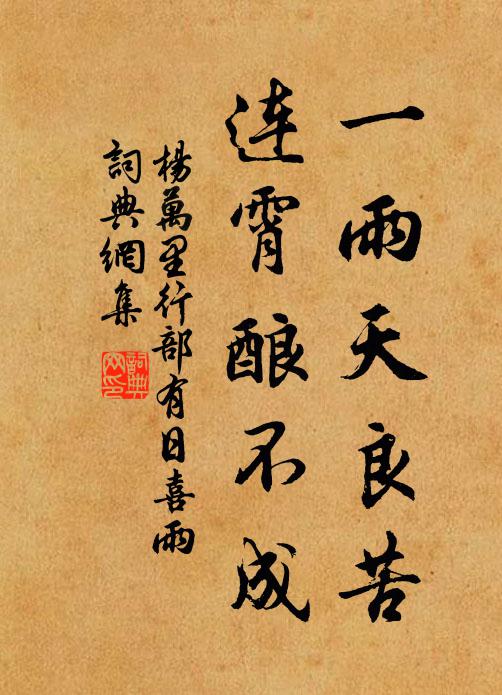 一雨天良苦
连霄酿不成
楊萬里行部有日喜雨
詞典網集
詞典网印